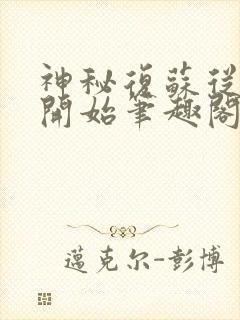 神秘復蘇從
開始筆趣閣
邁克尔-彭博